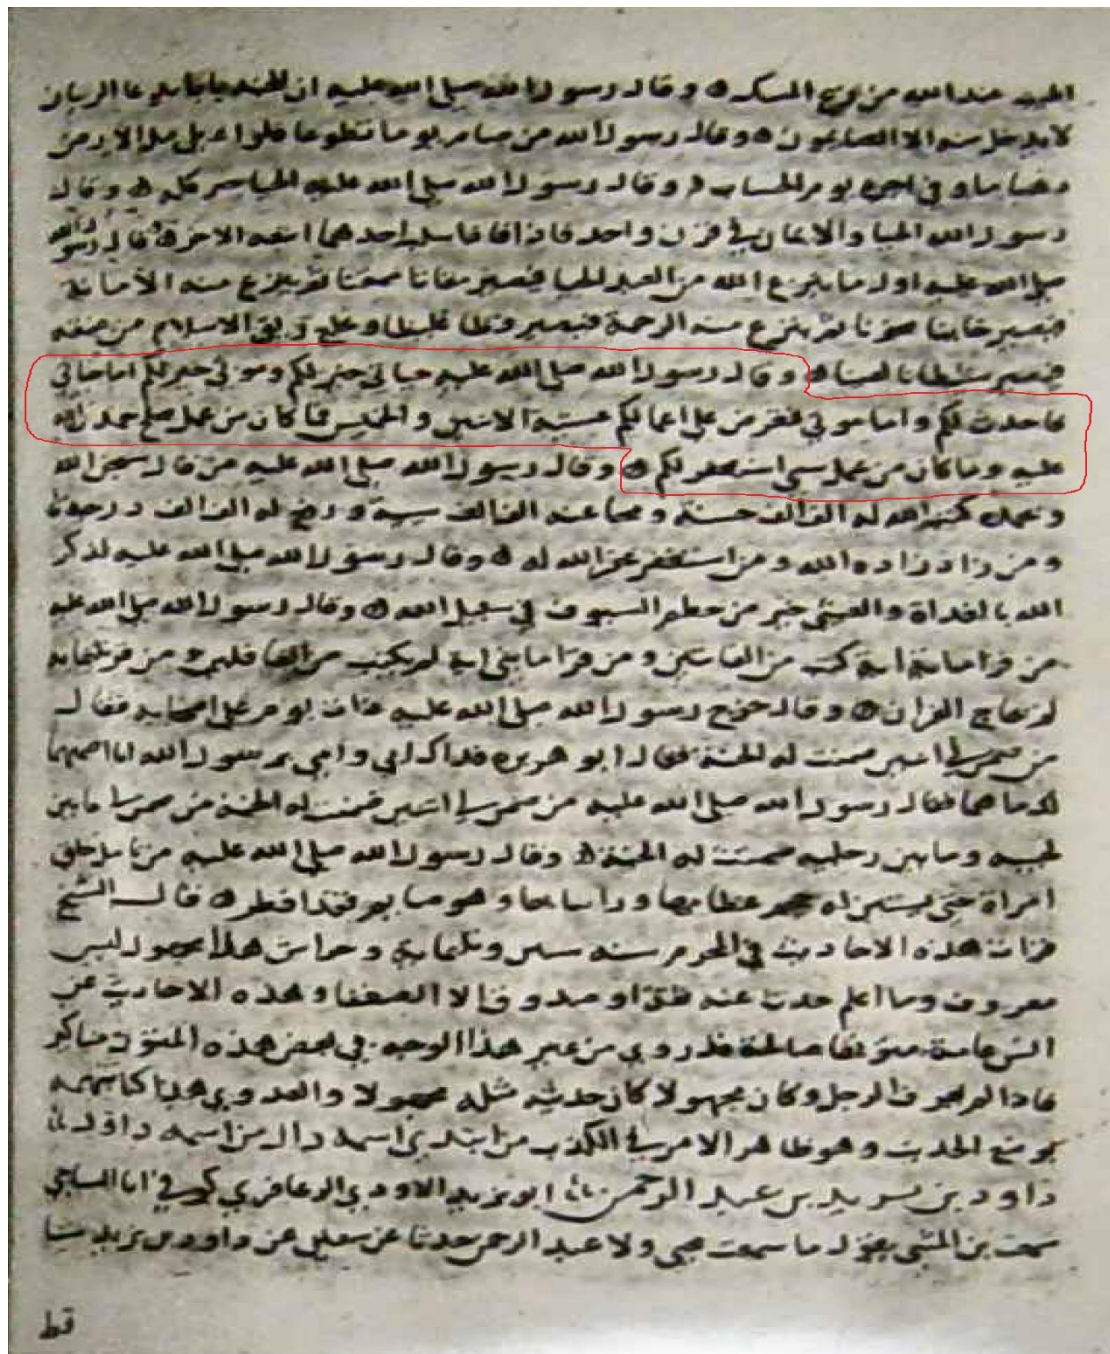 اطيب عند الله من ريح المسك وقال رسول الله صلى الله عليه ان للجنة بابا يدعا الريان
لا يدخل منه الا الصائمون وقال رسول الله من صام يوما تطوعا فلو اعطي ملا الارض
ذهبا ما وفي اجره يوم الحساب وقال رسول الله صلى الله عليه الحيا خير كله وقال
رسول الله الحيا والايمان في قرن واحد فاذا سلب احدهما اتبعه الاخر قال رسول الله
صلى الله عليه اول ما ينزع الله من العبد الحيا فيصير مقاتا ممقتا ثم ينزع منه الامانة
فيصير خاينا مخونا ثم ينزع منه الرحمة فيصير فظا غليظا ويخلع ربق الاسلام من عنقه
فيصير شيطانا لعينا وقال رسول الله صلى الله عليه حياتي خير لكم وموتي خير لكم اما حياتي
فاحدث لكم واما موتي فتعرض علي اعمالكم عشية الاثنين والخميس فما كان من عمل صالح حمدت الله
عليه وما كان من عمل سي استغفرت لكم وقال رسول الله صلى الله عليه من قال سبحن الله
وبحمده كتب الله له الف الف حسنة ومحا عنه الف الف سيية ورفع له الف الف درجة
ومن زاد زاده الله ومن استغفر غفر الله له وقال رسول الله صلى الله عليه لذكر
الله بالغداة والعشي خير من حطم السيوف في سبيل الله وقال رسول الله صلى الله عليه
من قرا ماية اية كتب من القانتين ومن قرا مايتي اية لم يكتب من الغافلين ومن قرا ثلثماية
لم يحاج القران وقال خرج رسول الله صلى الله عليه ذات يوم على اصحابه فقال
من ضمن لي اثنين ضمنت له الجنة فقال ابو هريره فداك ابي وامي يرسول الله انا اضمنهما
لك ما هما فقال رسول الله صلى الله عليه من ضمن لي اثنين ضمنت له الجنة من ضمن لي ما بين
لحييه وما بين رجليه ضمنت له الجنة وقال رسول الله صلى الله عليه من تامل خلق
امراة حتى يستبين له حجم عظامها وراا ثيابها وهو صايم فقد افطر قال الشيخ
قرات هذه الاحاديث في المحرم سنه وثلثماية وخراش هذا مجهول ليس
معروف وما اعلم حدث عنه ثقة او صدوق الا الضعفا وهذه الاحاديث عن
انس عامة متونها صالحة قد روي من غير هذا الوجه في بعض هذه المتون مناكير
فاذا لم يعرف الرجل وكان مجهولا كان حديثه مثله مجهولا والعدوي هذا كنا نتهمه
بوضع الحديث وهو ظاهر الامر في الكذب من ابتدى اسمه دال من اسمه داود
داود بن يزيد بن عبد الرحمن ابو يزيد الاودي الزعافري كوفي انا الساجي
سمعت بن المثنى يقول ما سمعت يحيى ولا عبد الرحمن حدثا عن سفين عن داود بن يزيد شيا
قط